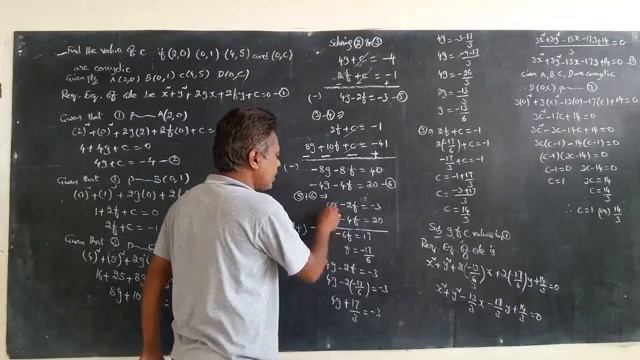 Find the value of c if (2,0) (0,1) (4,5) and (0,c)
are concyclic
Given pts A(2,0) B(0,1) C(4,5) D(0,c)
Req. Eq. of ⊙le be x²+y²+2gx+2fy+c=0-①
Given that ① A(2,0)
(2)²+(0)²+2g(2)+2f(0)+c=
4+4g+c=0
4g+c=-4-②
Given that ① B(0,1)
(0)²+(1)²+2g(0)+2
1+2f+c=0
2f+c=
Given that ①
(4)²+(5)²+2g(
16+25+8
8g+10
Solving ② & ③
4g+c=-4
2f+c=-1
(-) 4g-2f=-3-⑤
③-④⇒
2f+c=-1
8g+10f+c=-41
(-)
-8g-8f=40
-4g-4f=20-⑥
⑤+⑥⇒
-2f=-3
-4f=20
-6f=17
f=-17/6
4g-2f=-3
4g-2(-17/6)=-3
4g+17/3=-3
4g=-3-17/3
4g=-9-17/3
4g=-26/3
2g=-13/3
g=-13/6
③⇒2f+c=-1
2(-17/6)+c=-1
-17/3+c=-1
c=-1+17/3
c=-3+17/3
c=14/3
Sub g f c values in ①
Req Eq of ⊙le is
x²+y²+2(-13/6)x+2(-17/6)y+14/3=0
x²+y²-13/3x-17/3y+14/3=0
3x²+3y²-13x-17y+14=0
3
3x²+3y²-13x-17y+14=0
Given A,B,C,D are concyclic
D(0,c)
3(0)²+3(c)²-13(0)-17(c)+14=0
3c²-17c+14=0
3c²-3c-14c+14=0
3c(c-1)-14(c-1)=0
(c-1)(3c-14)=0
c-1=0 3c-14=0
c=1 3c=14
c=14/3
∴ c=1 (or) 14/3